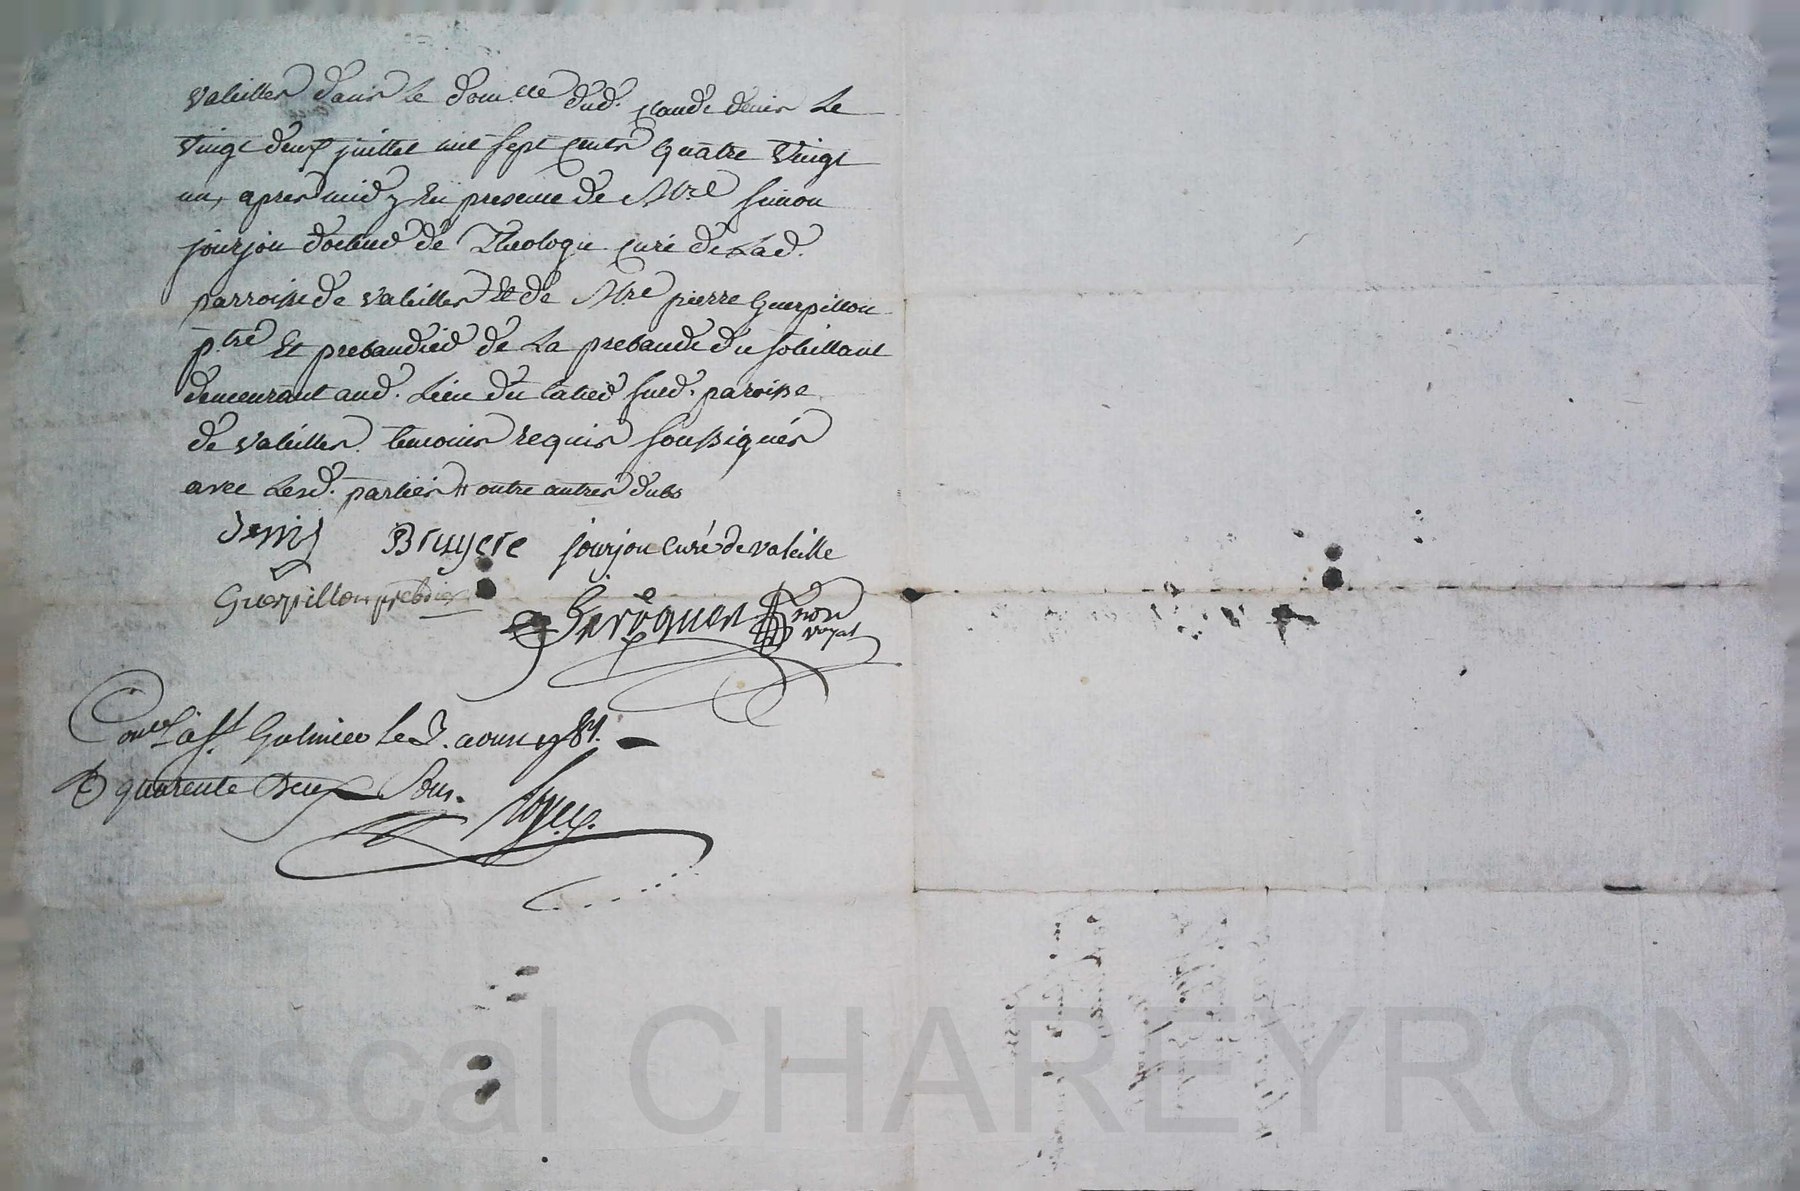 valeilles dans le dom.lle dud. claude denis le
vingt deux juillet mil sept cents quatre vingt
un, apres midy En presence de Mre simon
jourjon docteur de Theologie curé de Lad.
parroisse de valeilles Et de Mre pierre Guerpillon
p.tre Et prebandier de La prebande du soleillant
demeurant aud. Lieu du susd. paroisse
de valeilles temoins requis soussignés
avec Lesd. parties outre autres dubs
Denis Bruyere jourjon curé de valeille
Guerpillon prebdier
non royal
Con.lé à S.t Galmier le 3. aoust 1781.
R quarente Deux Sous.
Pascal CHAREYRON